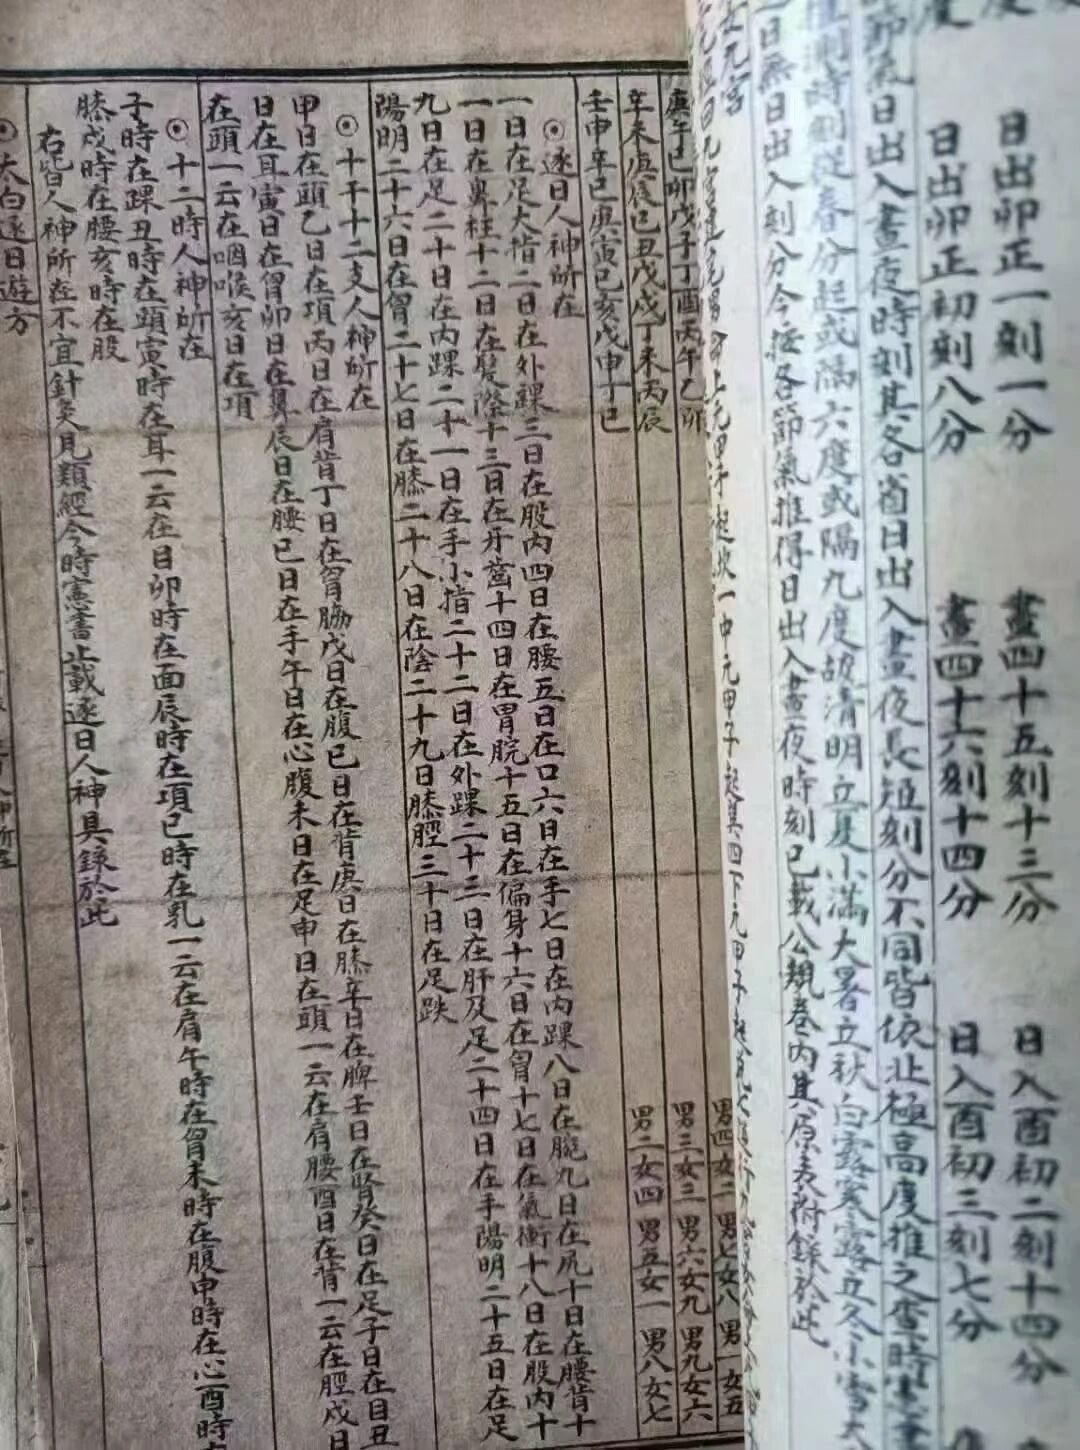 日出卯正一刻一分
晝四十五刻十三分
日入酉初二刻十四分
日出卯正初刻八分
晝四十六刻十四分
日入酉初三刻七分
節氣日出入晝夜時刻其各省日出入晝夜長短刻分不同皆依北極高度推之查時憲
時刻從春分起或隔六度或隔九度故清明立夏小滿大暑立秋白露寒露立冬小雪大
日無日出入刻分今按各節氣推得日出入晝夜時刻已載公規卷內其原表附錄於此
女九宮
男四女二 男七女八 男一女五
庚午己卯戊子丁酉丙午乙卯
男三女三 男六女九 男九女六
辛未庚辰己丑戊戌丁未丙辰
男二女四 男五女一 男八女七
壬申辛巳庚寅己亥戊申丁巳
⊙逐日人神所在
一日在足大指二日在外踝三日在股內四日在腰五日在口六日在手七日在內踝八日在腕九日在尻十日在腰背十
一日在鼻柱十二日在髮際十三日在牙齒十四日在胃脘十五日在偏身十六日在胷十七日在氣衝十八日在股內十
九日在足二十日在內踝二十一日在手小指二十二日在外踝二十三日在肝及足二十四日在手陽明二十五日在足
陽明二十六日在胷二十七日在膝二十八日在陰二十九日膝脛三十日在足趺
⊙十干十二支人神所在
甲日在頭乙日在項丙日在肩背丁日在胷脇戊日在腹己日在背庚日在膝辛日在脾壬日在腎癸日在足子日在目丑
日在耳寅日在胷卯日在鼻辰日在腰巳日在手午日在心腹未日在足申日在頭一云在肩腰酉日在背一云在脛戌日
在頭一云在咽喉亥日在項
⊙十二時人神所在
子時在踝丑時在頭寅時在耳一云在目卯時在面辰時在項巳時在乳一云在肩午時在胷未時在腹申時在心酉時在
膝戌時在腰亥時在股
右皆人神所在不宜針灸見類經今時憲書止載逐日人神具錄於此
⊙太白逐日遊方